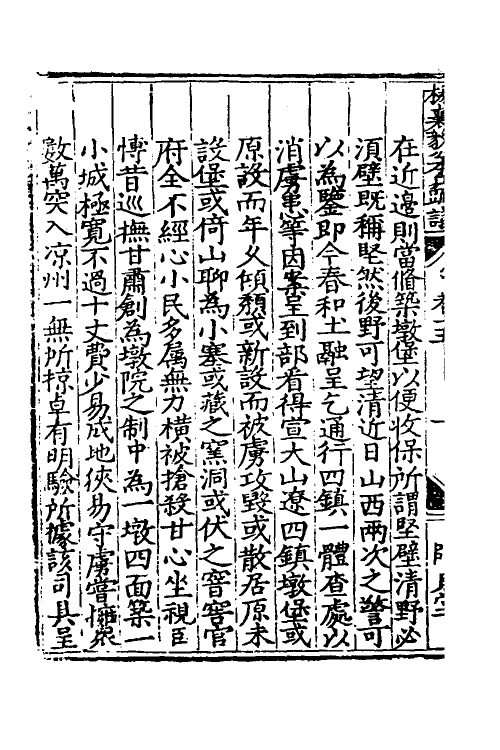 在近邊則當脩築墩堡以便收保所謂堅壁清野必
須壁既稱堅然後野可望清近日山西兩次之警可
以為鑒即今春和土融呈乞通行四鎮一體查處以
消虜患等因案呈到部看得宣大山遼四鎮墩堡或
原設而年久傾頹或新設而被虜攻毀或散居原未
設堡或倚山聊為小寨或藏之窯洞或伏之窨窖官
府全不經心小民多属無力橫被搶殺甘心坐視臣
慱昔巡撫甘肅創為墩院之制中為一墩四面築一
小城極寛不過十丈費少易成地狹易守虜嘗擁衆
數萬突入凉州一無所掠卓有明驗所據該司具呈
卷五
一